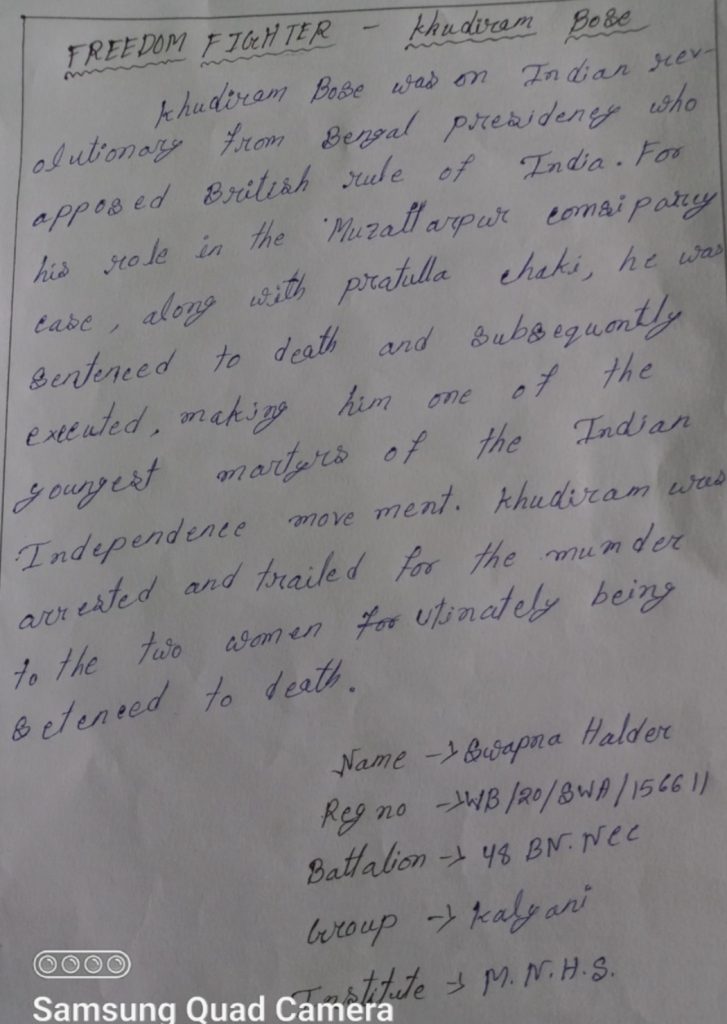 FREEDOM FIGHTER - Khudiram Bose
Khudiram Bose was on Indian rev-
olutionary from Bengal presidency who
apposed British rule of India. For
his role in the Muzattarpur comsiparcy
case, along with pratulla chaki, he was
sentenced to death and subsequontly
executed, making him one of the
youngest martyrs of the Indian
Independence movement. Khudiram was
arrested and trailed for the mumder
to the two women utinately being
setenced to death.
Name → Swapna Halder
Reg no → WB/20/SWA/156611
Battalion → 48 BN. NCC
Group → Kalyani
Institute → M. N. H. S.
Samsung Quad Camera